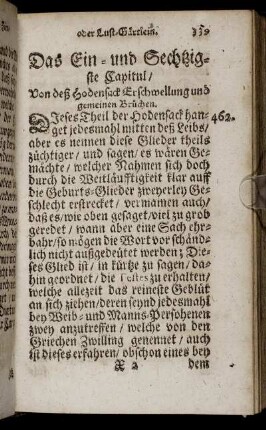 oder Lust-Gärtlein. 339
Das Ein- und Sechtzig-
ste Capitul/
Von deß Hodensack Erschwellung und
gemeinen Brüchen.
DJeses Theil der Hodensack han- 462.
get jedesmahl mitten deß Leibs/
aber es nennen diese Glieder theils
züchtiger/ und sagen/ es wären Ge-
mächte/ welcher Nahmen sich doch
durch die Weitläufftigkeit klar auff
die Geburts-Glieder zweyerley Ge-
schlecht erstrecket/ vermainen auch/
daß es/ wie oben gesaget/ viel zu grob
geredet/ wann aber eine Sach ehr-
bahr/ so mögen die Wort vor schänd-
lich nicht außgedeutet werden; Die-
ses Glied ist/ in kürtze zu sagen/ da-
hin geordnet/ die Testes zu erhalten/
welche allezeit das reineste Geblüt
an sich ziehen/ deren seynd jedesmahl
bey Weib- und Manns-Persohenen
zwey anzutreffen/ welche von den
Griechen Zwilling genennet/ auch
ist dieses erfahren/ obschon eines bey
X 2 dem